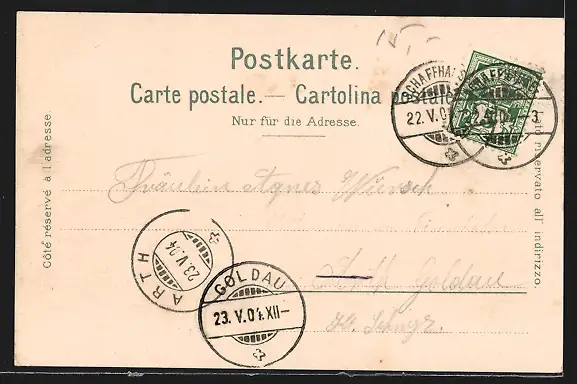 15,-
Postkarte.
Carte postale. — Cartolina postale
Nur für die Adresse.
Côté réservé à l'adresse.
riservato all' indirizzo.
SCHAFFHAUSEN
22.V.04
SCHAFFHAUSEN
22.V.04 -3
Fräulein Agnes Wünsch
Arth Goldau
Kt. Schwyz
ARTH
23.V.04
GOLDAU
23.V.04.XII-